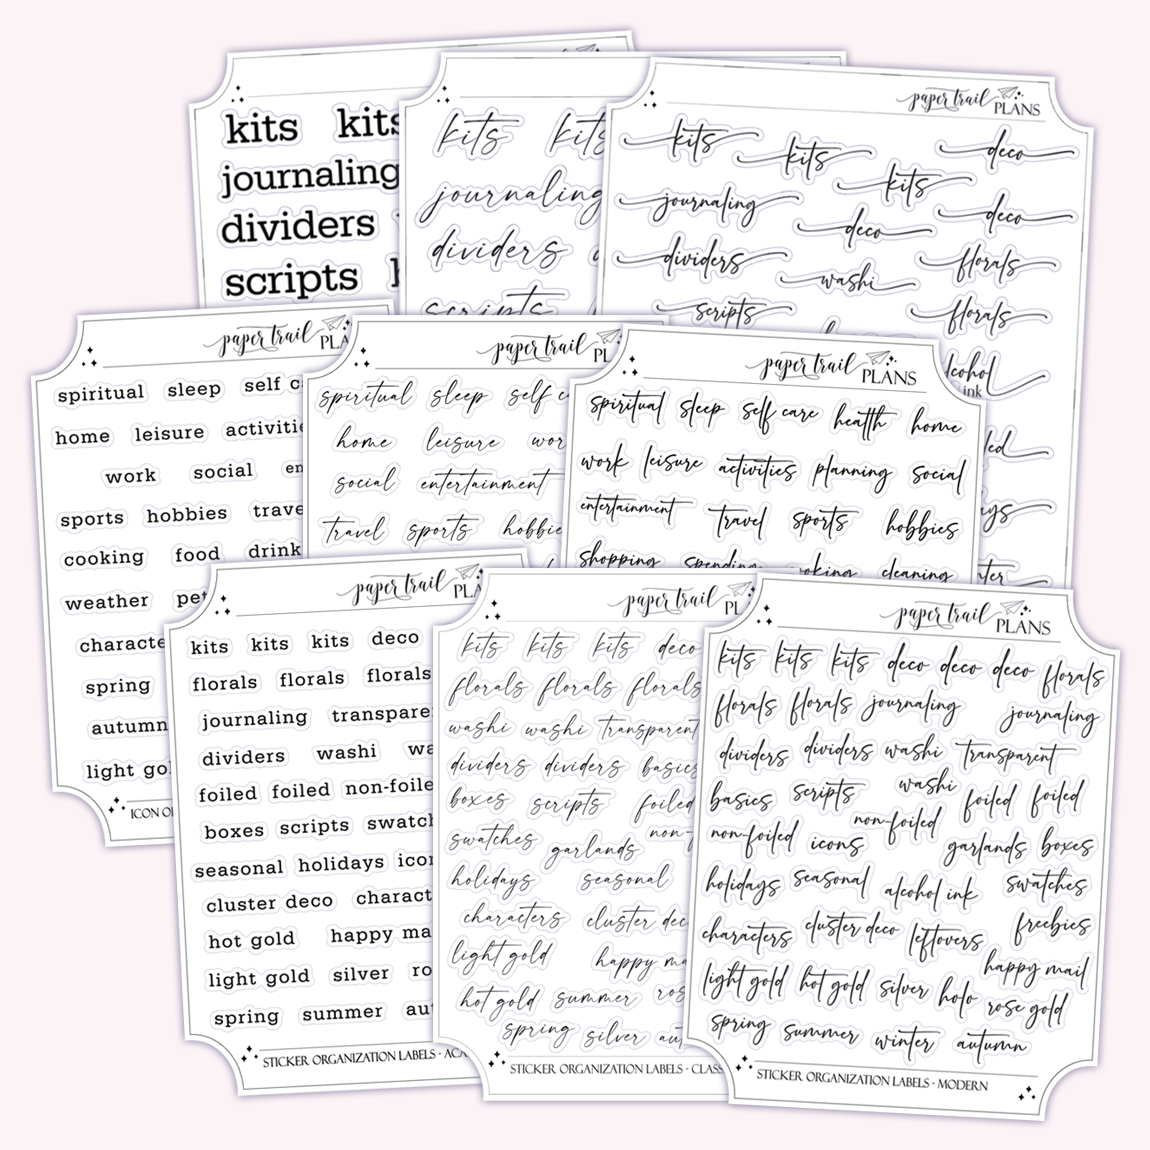 kits kits
journaling
dividers
scripts
kits kits
journaling
dividers
scripts
paper trail PLANS
kits kits kits deco
journaling deco deco
dividers washi florals
scripts florals
alcohol ink
paper trail
spiritual sleep self
home leisure
work social
sports hobbies
cooking food drink
weather
spring
autumn
light
paper trail
spiritual sleep self
home leisure
social entertainment
travel sports
paper trail PLANS
spiritual sleep self care health home
work leisure activities planning social
entertainment travel sports hobbies
shopping spending cleaning
paper trail
kits kits kits deco
florals florals florals
journaling
dividers washi
foiled foiled
boxes scripts
seasonal holidays
cluster deco
hot gold happy
light gold silver
spring summer
STICKER ORGANIZATION LABELS -
paper trail
kits kits kits deco
florals florals florals
washi washi transparent
dividers dividers basics
boxes scripts foiled
swatches garlands
holidays seasonal
characters cluster
light gold happy
hot gold summer
spring silver
STICKER ORGANIZATION LABELS -
paper trail PLANS
kits kits kits deco deco deco florals
florals florals journaling journaling
dividers dividers washi transparent
basics scripts washi foiled foiled
non-foiled icons non-foiled garlands boxes
holidays seasonal alcohol ink swatches
characters cluster deco leftovers freebies
light gold hot gold silver holo rose gold happy mail
spring summer winter autumn
STICKER ORGANIZATION LABELS - MODERN